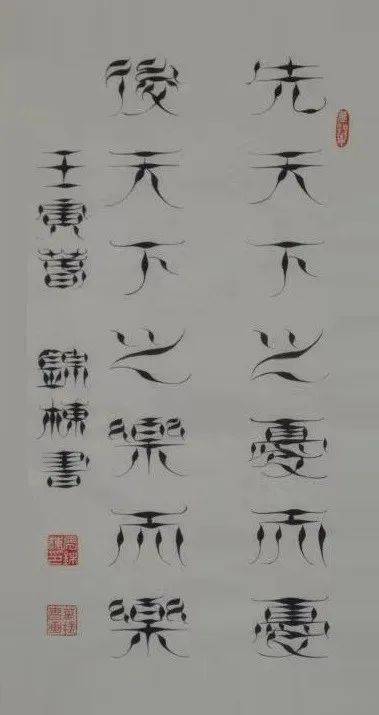 先天下之憂而憂
後天下之樂而樂
壬寅春 錦棟書